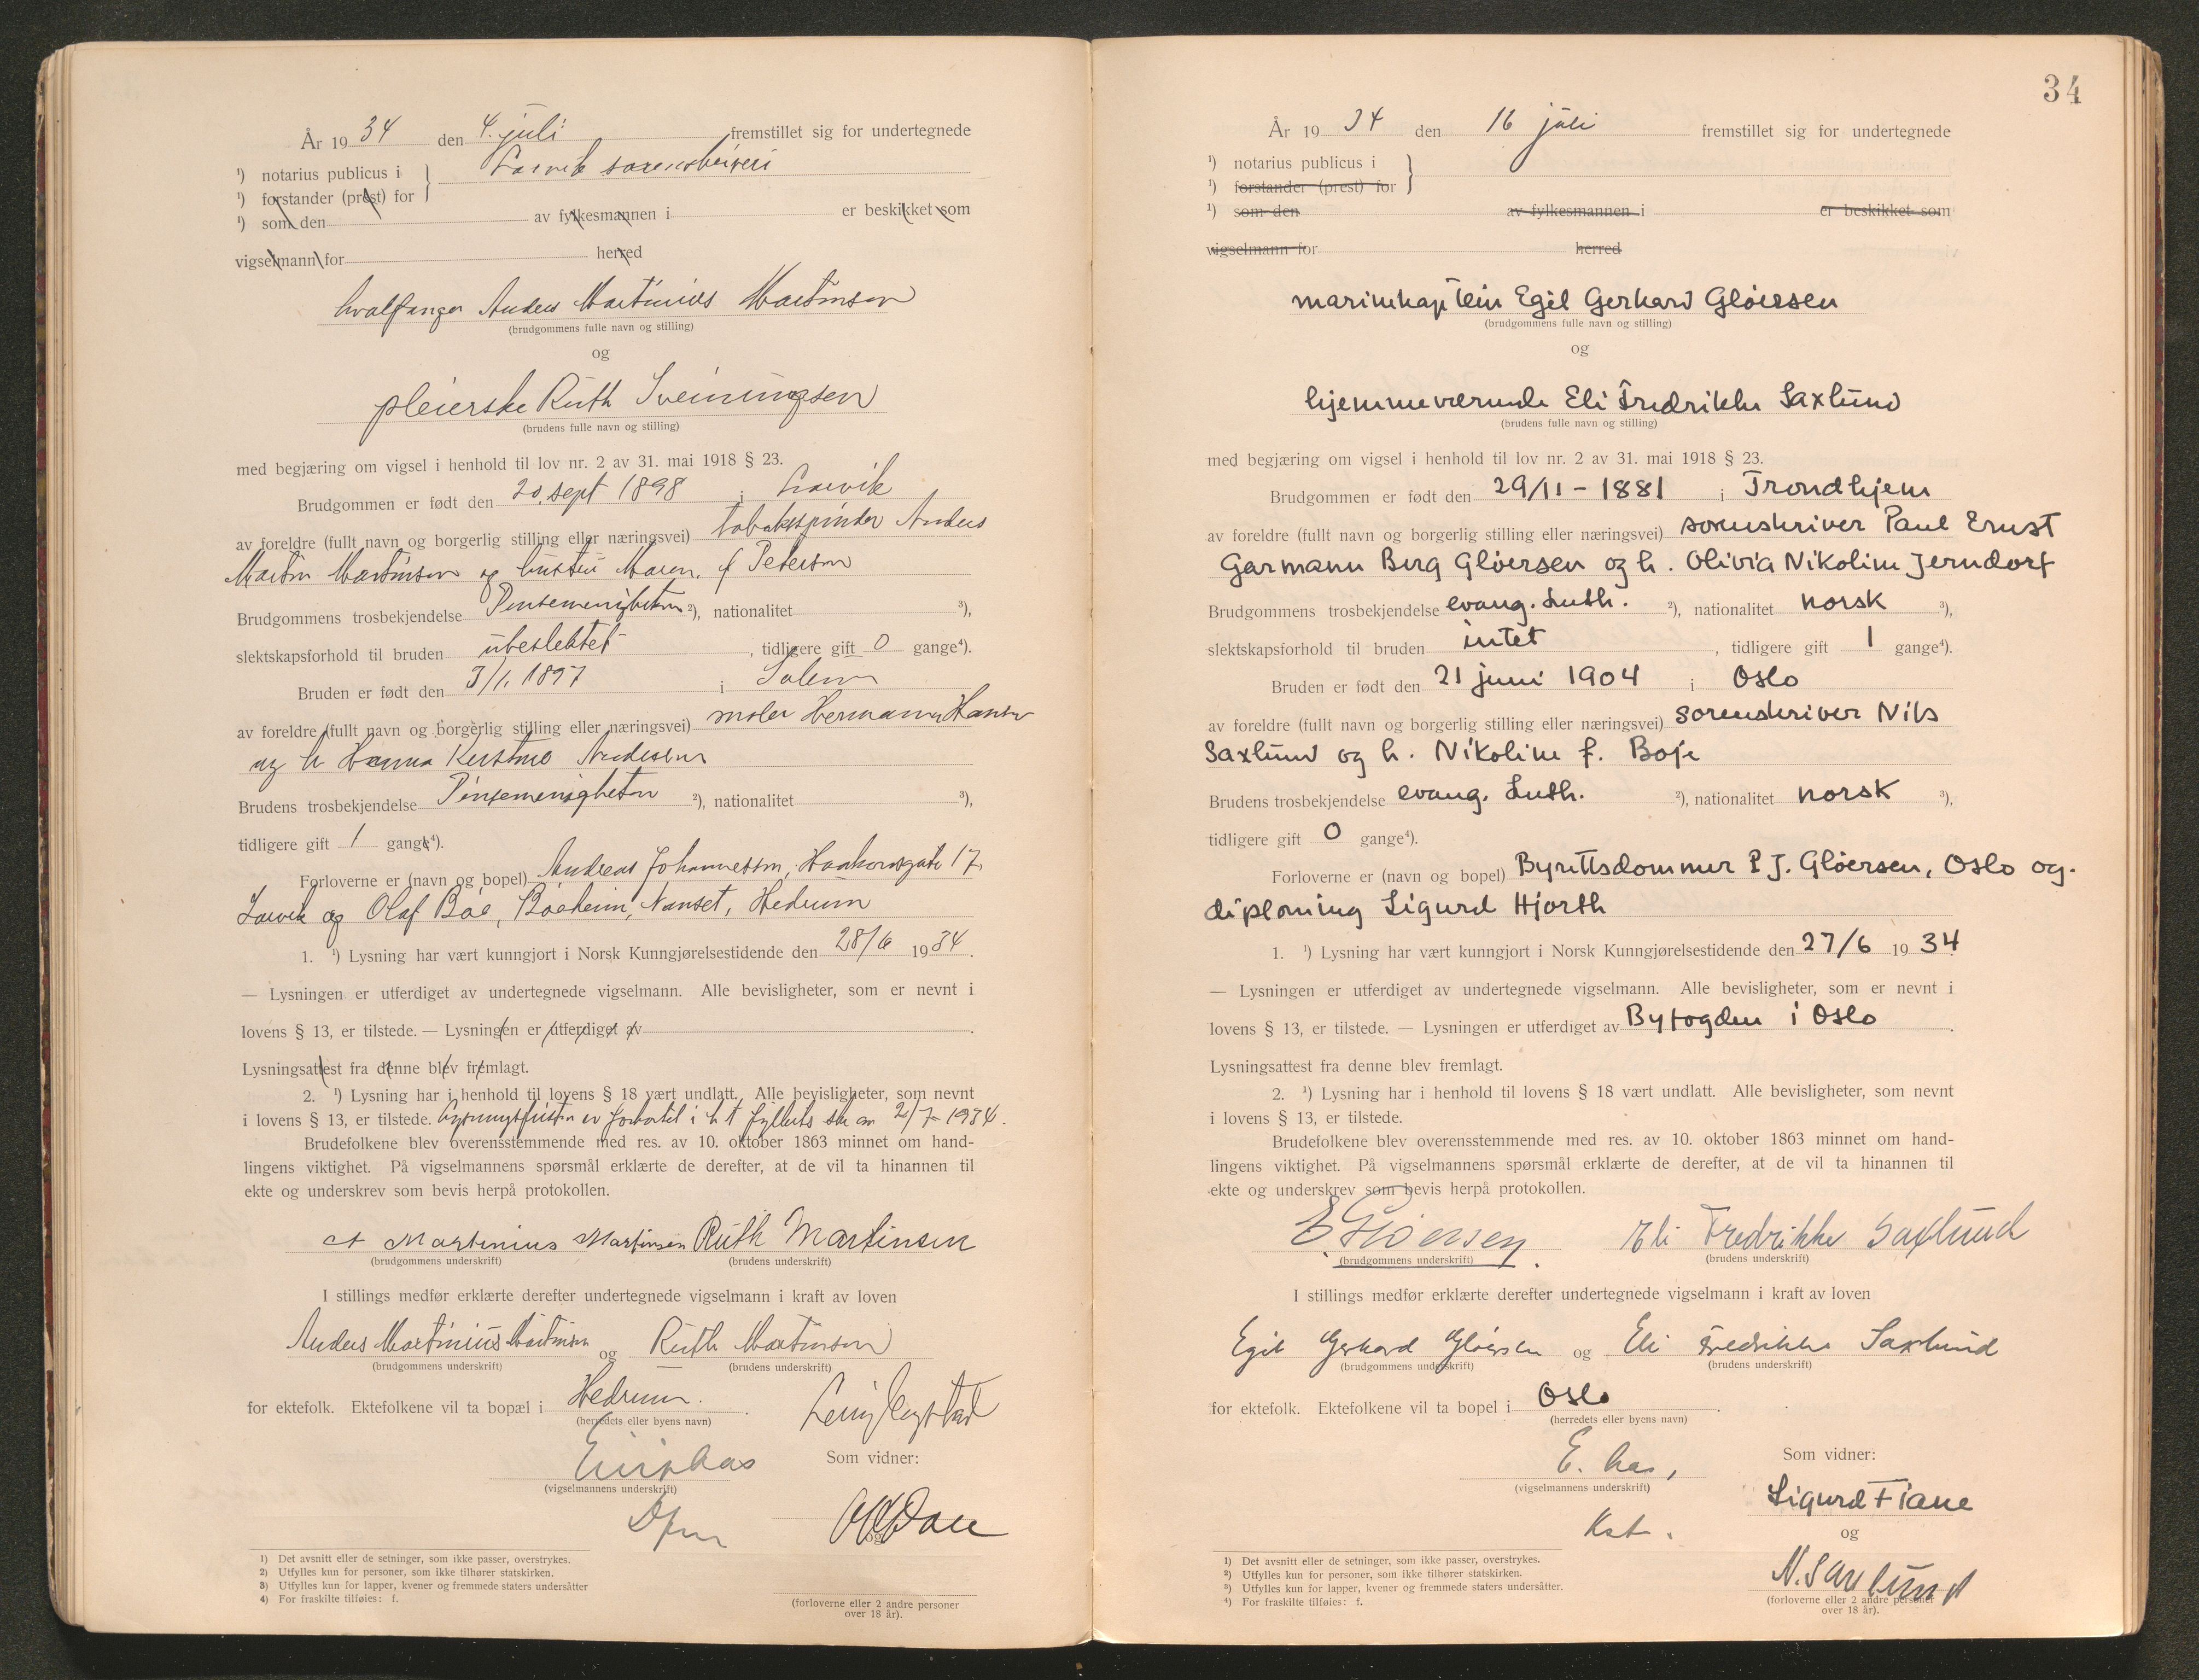 År 1934 den 4. juli fremstillet sig for undertegnede
¹) notarius publicus i } Larvik sorenskriveri
¹) forstander (prest) for
¹) som den av fylkesmannen i er beskikket som
vigselmann for herred
hvalfanger Anders Martinius Martinsen
(brudgommens fulle navn og stilling)
og
pleierske Ruth Sveinungsen
(brudens fulle navn og stilling)
med begjæring om vigsel i henhold til lov nr. 2 av 31. mai 1918 § 23.
Brudgommen er født den 20. sept 1898 i Larvik
av foreldre (fullt navn og borgerlig stilling eller næringsvei) tobakspinder Anders
Martin Martinsen og hustru Maren f Petersen
Brudgommens trosbekjendelse Pinsemenigheten ²), nationalitet ³),
slektskapsforhold til bruden ubeslektet, tidligere gift 0 gange⁴).
Bruden er født den 3/1. 1897 i Solem
av foreldre (fullt navn og borgerlig stilling eller næringsvei) maler Hermann Hansen
og h Hanna Kirstine Andersen
Brudens trosbekjendelse Pinsemenigheten ²), nationalitet ³),
tidligere gift 1 gange⁴).
Forloverne er (navn og bopel) Andreas Johannessen, Haakonsgate 17,
Larvik og Olaf Bøe, Bøeheim, Nanset, Hedrum
1. ¹) Lysning har vært kunngjort i Norsk Kunngjørelsestidende den 28/6 1934.
— Lysningen er utferdiget av undertegnede vigselmann. Alle bevisligheter, som er nevnt i
lovens § 13, er tilstede. — Lysningen er utferdiget av .
Lysningsattest fra denne blev fremlagt.
2. ¹) Lysning har i henhold til lovens § 18 vært undlatt. Alle bevisligheter, som nevnt
i lovens § 13, er tilstede. 2/7-1934.
Brudefolkene blev overensstemmende med res. av 10. oktober 1863 minnet om hand-
lingens viktighet. På vigselmannens spørsmål erklærte de derefter, at de vil ta hinannen til
ekte og underskrev som bevis herpå protokollen.
A Martinius Martinsen Ruth Martinsen
(brudgommens underskrift) (brudens underskrift)
I stillings medfør erklærte derefter undertegnede vigselmann i kraft av loven
Anders Martinius Martinsen og Ruth Martinsen
(brudgommens underskrift) (brudens underskrift)
for ektefolk. Ektefolkene vil ta bopæl i Hedrum.
(herredets eller byens navn)
Som vidner:
(vigselmannens underskrift)
og
(forloverne eller 2 andre personer
over 18 år).
1) Det avsnitt eller de setninger, som ikke passer, overstrykes.
2) Utfylles kun for personer, som ikke tilhører statskirken.
3) Utfylles kun for lapper, kvener og fremmede staters undersåtter
4) For fraskilte tilføies: f.
34
År 1934 den 16 juli fremstillet sig for undertegnede
¹) notarius publicus i }
¹) forstander (prest) for
¹) som den av fylkesmannen i er beskikket som
vigselmann for herred
marinekaptein Egil Gerhard Gløersen
(brudgommens fulle navn og stilling)
og
hjemmeværende Eli Fredrikke Saxlund
(brudens fulle navn og stilling)
med begjæring om vigsel i henhold til lov nr. 2 av 31. mai 1918 § 23.
Brudgommen er født den 29/11 - 1881 i Trondhjem
av foreldre (fullt navn og borgerlig stilling eller næringsvei) sorenskriver Paul Ernst
Garmann Berg Gløersen og h. Olivia Nikoline Jerndorf
Brudgommens trosbekjendelse evang. Luth. ²), nationalitet norsk ³),
slektskapsforhold til bruden intet, tidligere gift 1 gange⁴).
Bruden er født den 21 juni 1904 i Oslo
av foreldre (fullt navn og borgerlig stilling eller næringsvei) sorenskriver Nils
Saxlund og h. Nikoline f. Boje
Brudens trosbekjendelse evang. Luth. ²), nationalitet norsk ³),
tidligere gift 0 gange⁴).
Forloverne er (navn og bopel) Byrettsdommer P J. Gløersen, Oslo og
diploming Sigurd Hjorth
1. ¹) Lysning har vært kunngjort i Norsk Kunngjørelsestidende den 27/6 1934.
— Lysningen er utferdiget av undertegnede vigselmann. Alle bevisligheter, som er nevnt i
lovens § 13, er tilstede. — Lysningen er utferdiget av Byfogden i Oslo.
Lysningsattest fra denne blev fremlagt.
2. ¹) Lysning har i henhold til lovens § 18 vært undlatt. Alle bevisligheter, som nevnt
i lovens § 13, er tilstede.
Brudefolkene blev overensstemmende med res. av 10. oktober 1863 minnet om hand-
lingens viktighet. På vigselmannens spørsmål erklærte de derefter, at de vil ta hinannen til
ekte og underskrev som bevis herpå protokollen.
E. Gløersen. Eli Fredrikke Saxlund
(brudgommens underskrift) (brudens underskrift)
I stillings medfør erklærte derefter undertegnede vigselmann i kraft av loven
Egil Gerhard Gløersen og Eli Fredrikke Saxlund
(brudgommens underskrift) (brudens underskrift)
for ektefolk. Ektefolkene vil ta bopel i Oslo.
(herredets eller byens navn)
Som vidner:
(vigselmannens underskrift)
Sigurd Fiane
og
Kst.
N. Saxlund
(forloverne eller 2 andre personer
over 18 år).
1) Det avsnitt eller de setninger, som ikke passer, overstrykes.
2) Utfylles kun for personer, som ikke tilhører statskirken.
3) Utfylles kun for lapper, kvener og fremmede staters undersåtter.
4) For fraskilte tilføies: f.